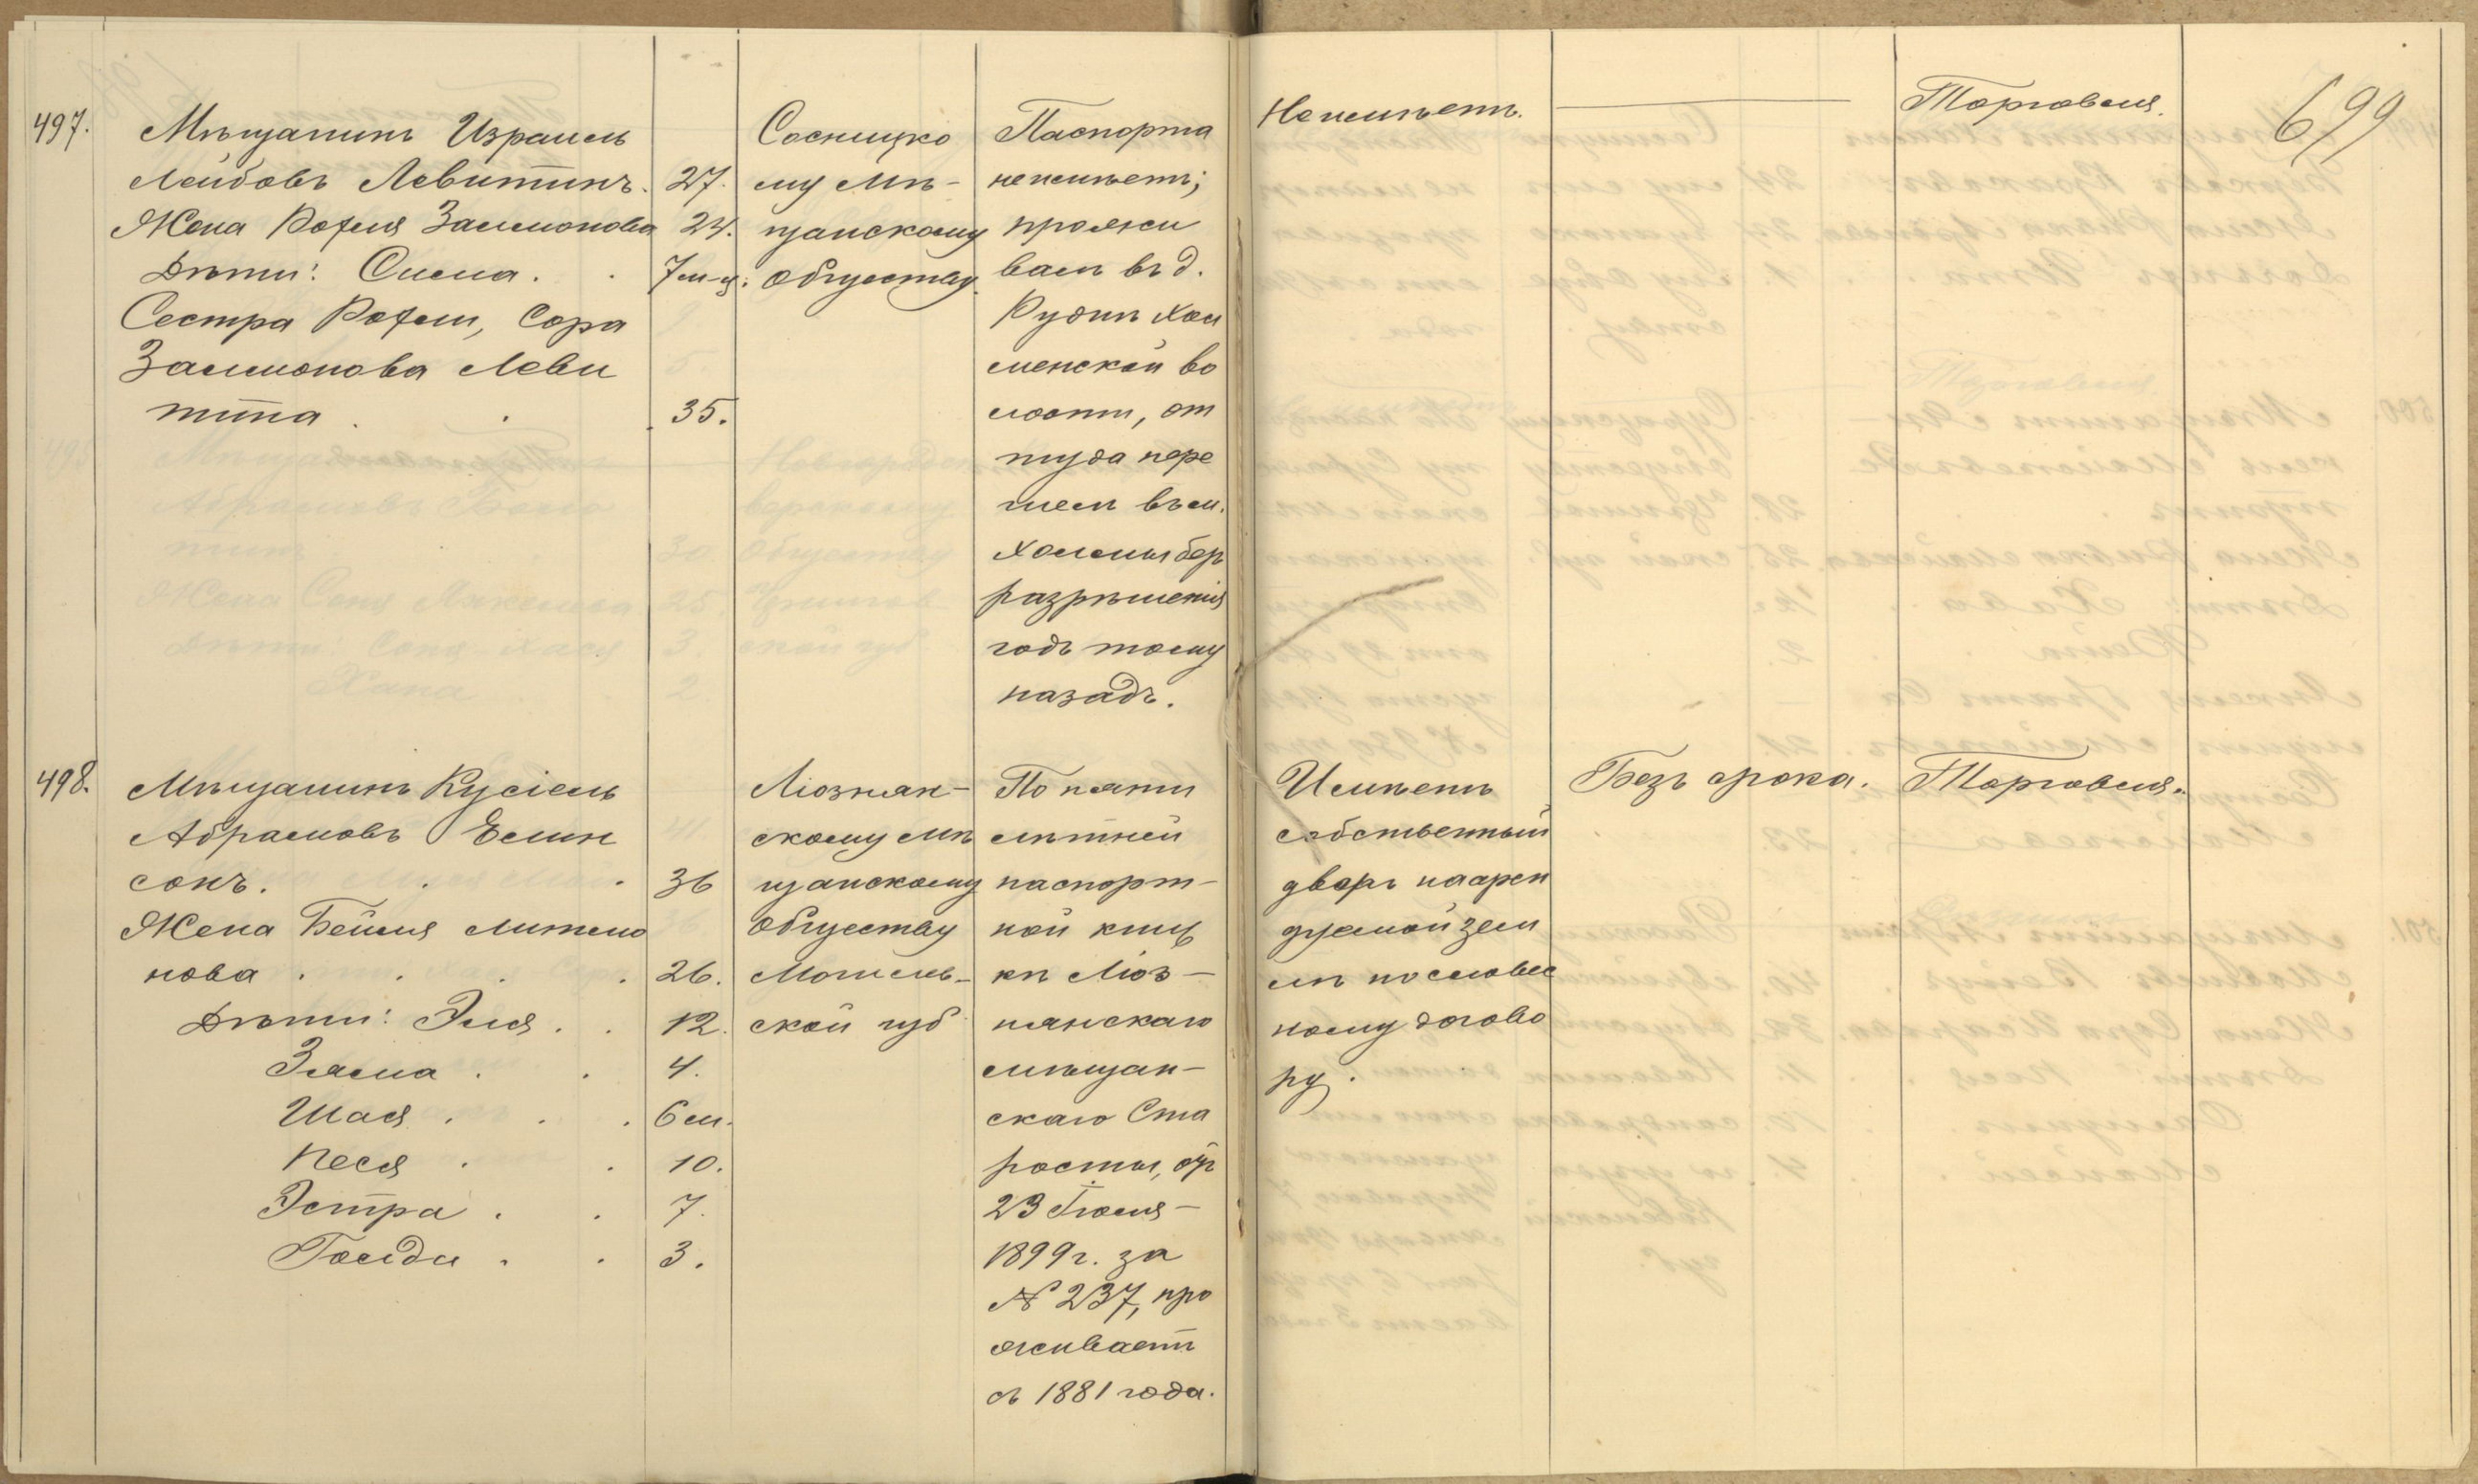 699
497.
Мѣщанинъ Израиль
Лейбовъ Левитинъ.
27.
Жена Рохля Залмонова
24.
Дѣти: Сима.
7 м-ц.
Сестра Рохли, Сора
Залмонова Леви
тина
35.
Сосницко
му Мѣ-
щанскому
Обществу.
Паспорта
неимѣетъ;
прожи
валъ въ д.
Рудни Хол
менской во
лости, от
туда пере
шелъ въ м.
Холмы без
разрѣшенія
годъ тому
назадъ.
Неимѣетъ.
Торговля.
498.
Мѣщанинъ Кусіель
Абрамовъ Белин
сонъ.
36
Жена Бейля
нова
26.
Дѣти: Эля
12.
Зяма
4.
Шая
6 м.
Песя
10.
Эстра
7.
Голда
3.
Ліознян-
скому мѣ
щанскому
Обществу
Могилев-
ской губ
По пяти
лѣтней
паспорт-
ной книж
кѣ Ліоз-
нянскаго
мѣщан-
скаго Ста
росты, отъ
23 Іюля
1899 г. за
№ 237, про
живаетъ
съ 1881 года.
Имѣетъ
собственный
дворъ наарен
дуемой зем
лѣ по словес
ному догово
ру.
Безъ срока.
Торговля.